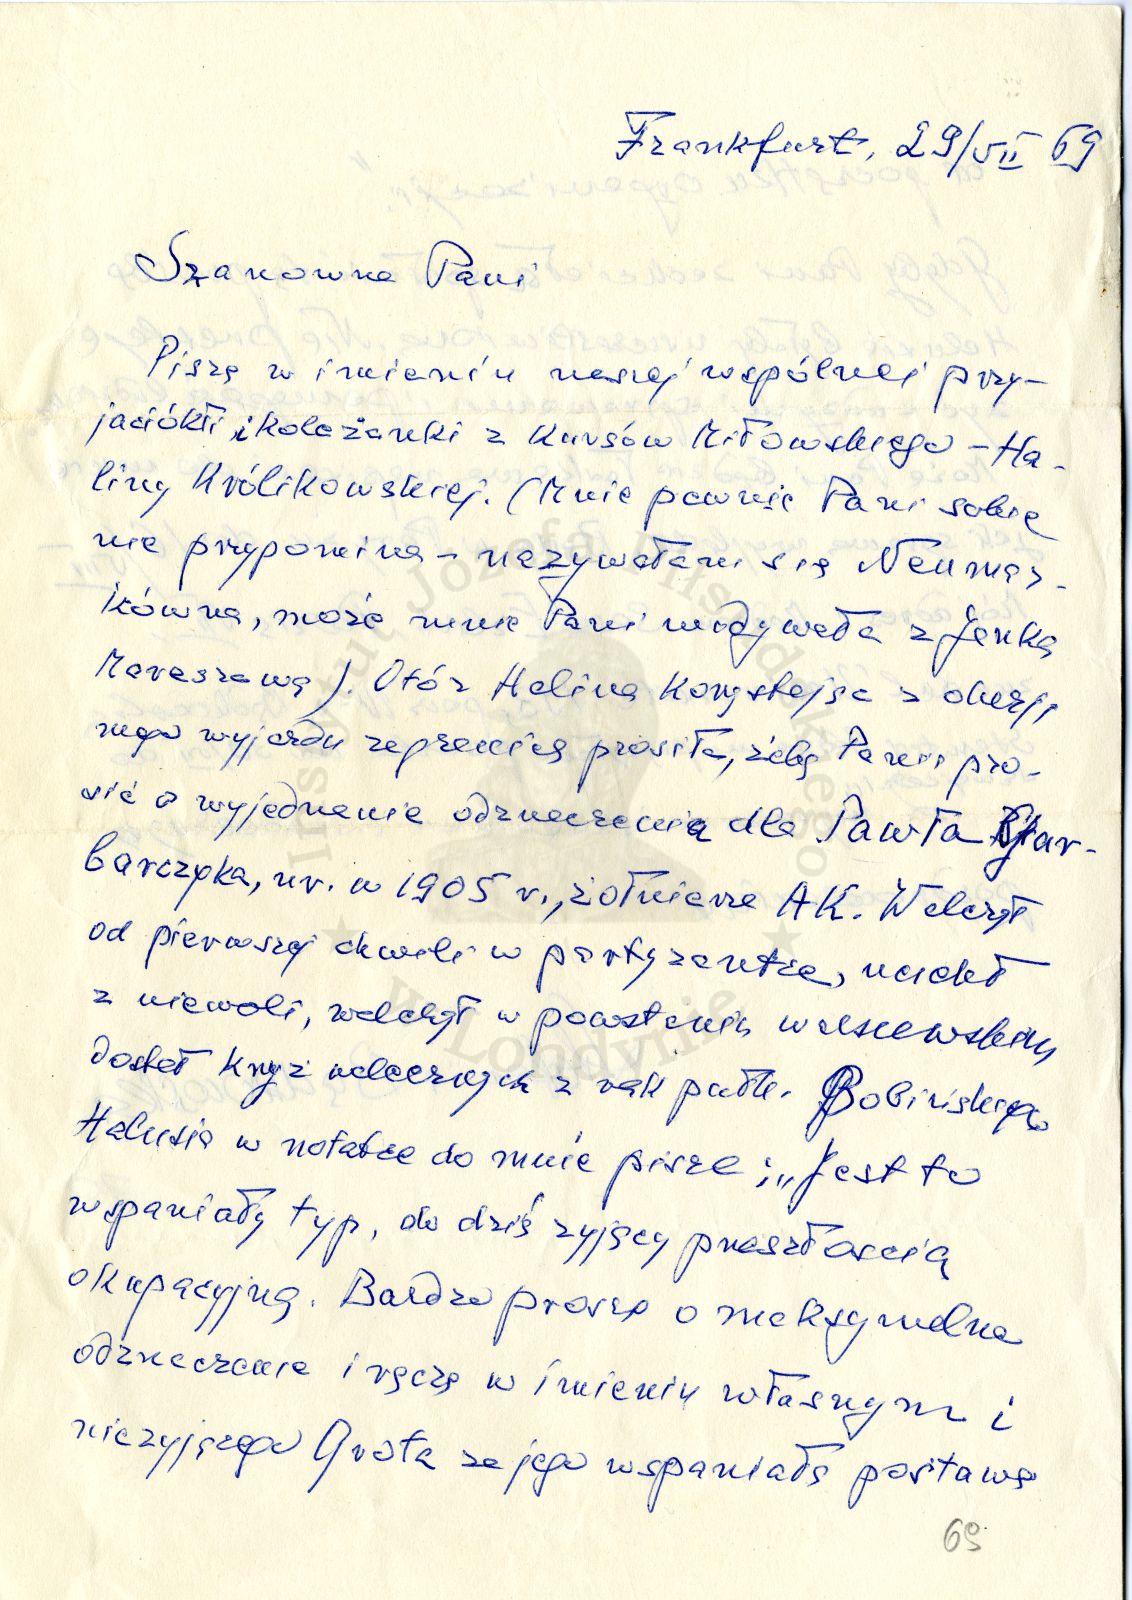 Frankfurt, 29/VII 69
Szanowna Pani
Piszę w imieniu naszej wspólnej przy-
jaciółki i koleżanki z kursów Miłowskiego – Ha-
liny Królikowskiej. (Mnie pewnie Pani sobie
nie przypomina – nazywałam się Neumar-
kówna, może mnie Pani widywała z Jenką
Mareszową). Otóż Halina korzystając z
mego wyjazdu zagranicę prosiła, żeby Panią pro-
sić o wyjednanie odznaczenia dla Pawła
barczyka, ur. w 1905 r., żołnierza AK. Walczył
od pierwszej chwili w partyzantce, uciekł
z niewoli, walczył w powstaniu warszawskim
dostał krzyż walecznych z rąk płk. Bobińskiego
Halusia w notatce do mnie pisze: „Jest to
wspaniały typ, do dziś żyjący przeszłością
okupacyjną. Bardzo proszę o maksymalne
odznaczenie i ręczę w imieniu własnym i
nieżyjącego Grota za jego wspaniałą postawę
69
Instytut Józefa Piłsudskiego
w Londynie